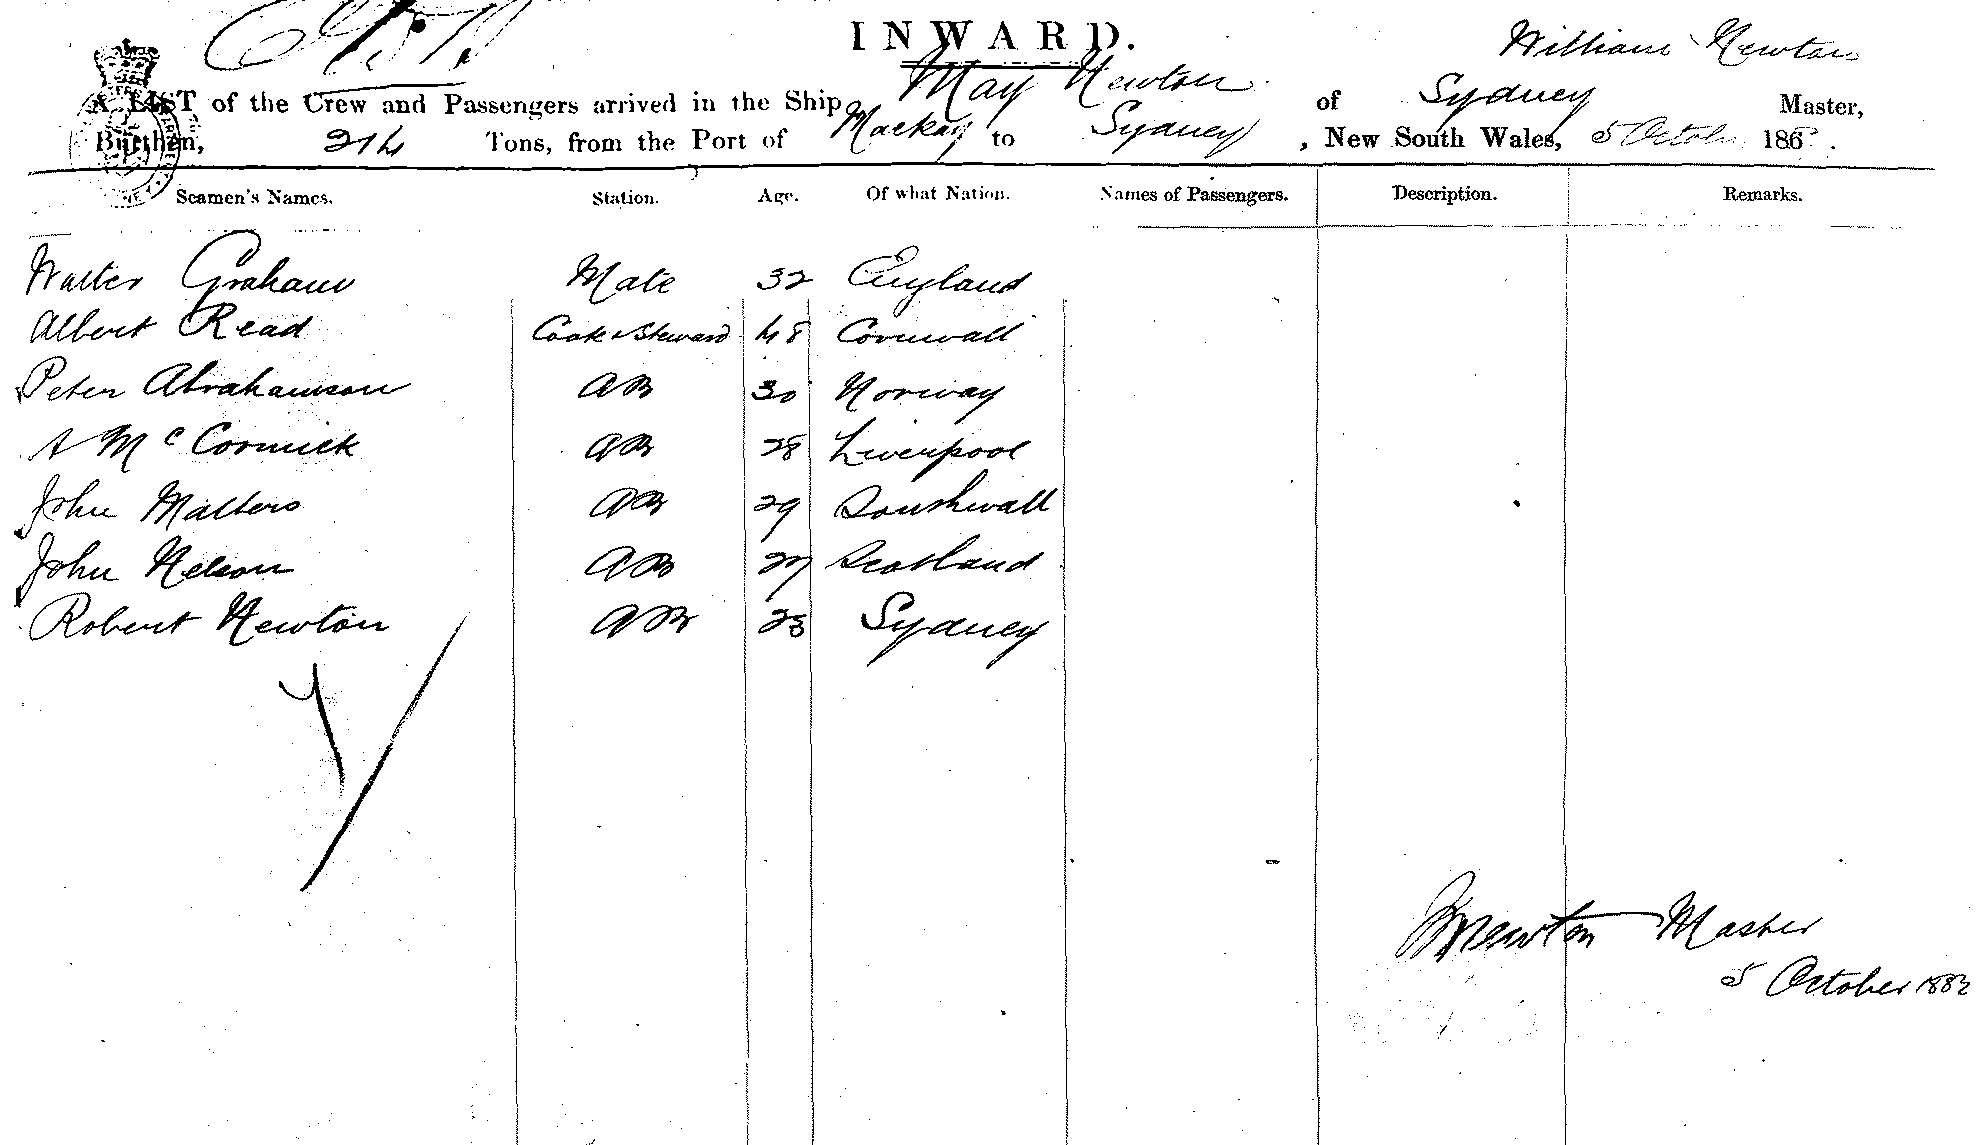 INWARD.
William Newton
A LIST of the Crew and Passengers arrived in the Ship May Newton of Sydney Master,
Burthen, 214 Tons, from the Port of Mackay to Sydney, New South Wales, 5 October 186
Seamen's Names. Station. Age. Of what Nation. Names of Passengers. Description. Remarks.
Walter Graham Mate 32 England
Albert Read Cook & Steward 48 Cornwall
Peter Abrahamson AB 30 Norway
A McCormick AB 28 Liverpool
John Matters AB 29
John Nelson AB 27 Scotland
Robert Newton AB 23 Sydney
7
Newton Master
5 October 1882